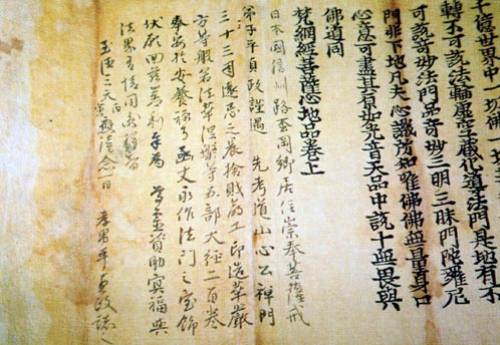 千億世界中一切佛
轉不可說法輪虛空藏化導法門是地有不
可說奇妙法門品奇妙三明三昧門陀羅尼
門非下地凡夫心識所知唯佛佛無量身口
心意可盡其原如光音天品中說十無畏與
佛道同
梵網經菩薩心地品卷上
日本國信州路岡鄉居住崇奉菩薩戒
弟子平貞政謹遇 先考道山心公禪門
三十三周遠忌之辰捨財命工印造華嚴
方等般若法華涅槃等五部大經二百卷
奉安於安養禪寺函丈永作法門之宝飾
伏願回茲善利奉為 尊霊資助冥福與
法界有情同出苦
至德三天丙寅念一日 孝男平貞政誌之